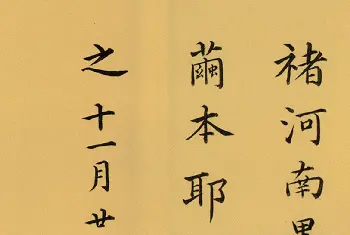 褚河南墨
繭本耶
之十一月廿